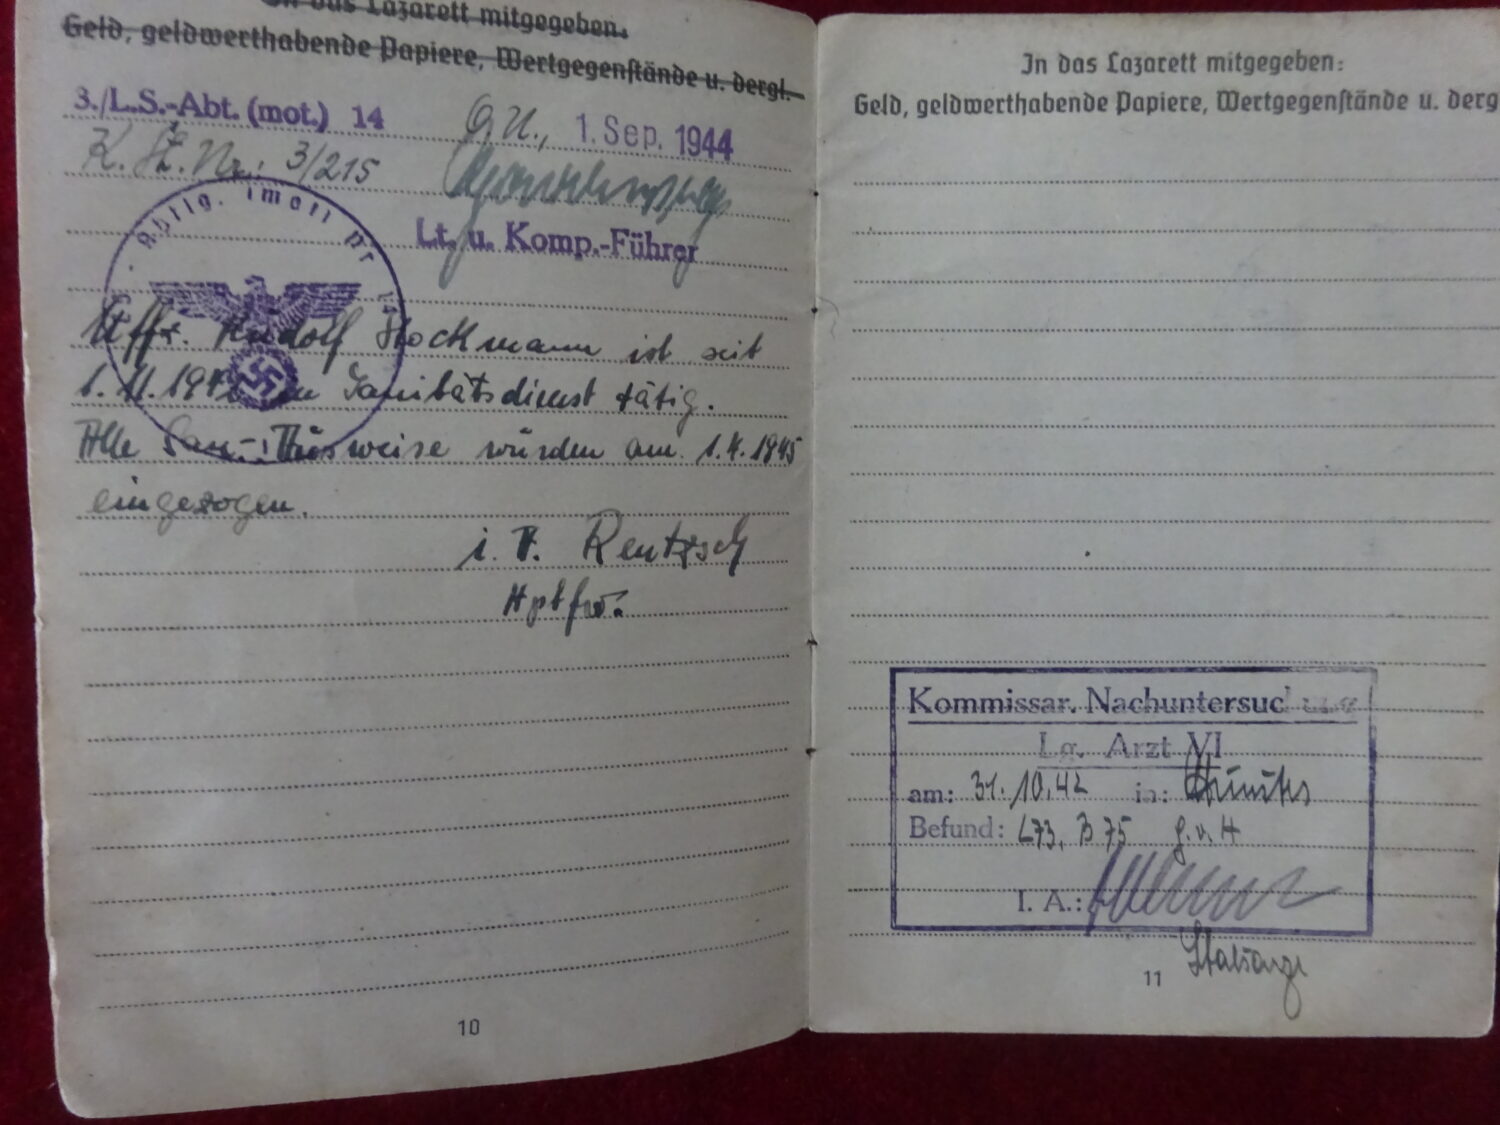 In das Lazarett mitgegeben.
Geld, geldwerthabende Papiere, Wertgegenstände u. dergl.
3./L.S.-Abt. (mot.) 14
O.U., 1. Sep. 1944
K. St. Nr.: 3/215
Lt. u. Komp.-Führer
Abtlg. (mot) Nr. 14
Uffz. Rudolf Stockmann ist seit
1. 11. Sanitätsdienst tätig.
Alle San.- Ausweise wurden am 1.4.1945
eingezogen.
i. V. Rentzsch
Hptfw.
10
In das Lazarett mitgegeben:
Geld, geldwerthabende Papiere, Wertgegenstände u. derg
Kommissar. Nachuntersuchung
Lg. Arzt VI
am: 31.10.42 in:
Befund: L73, B 75 g.v.H
I. A.:
Stabsarzt
11